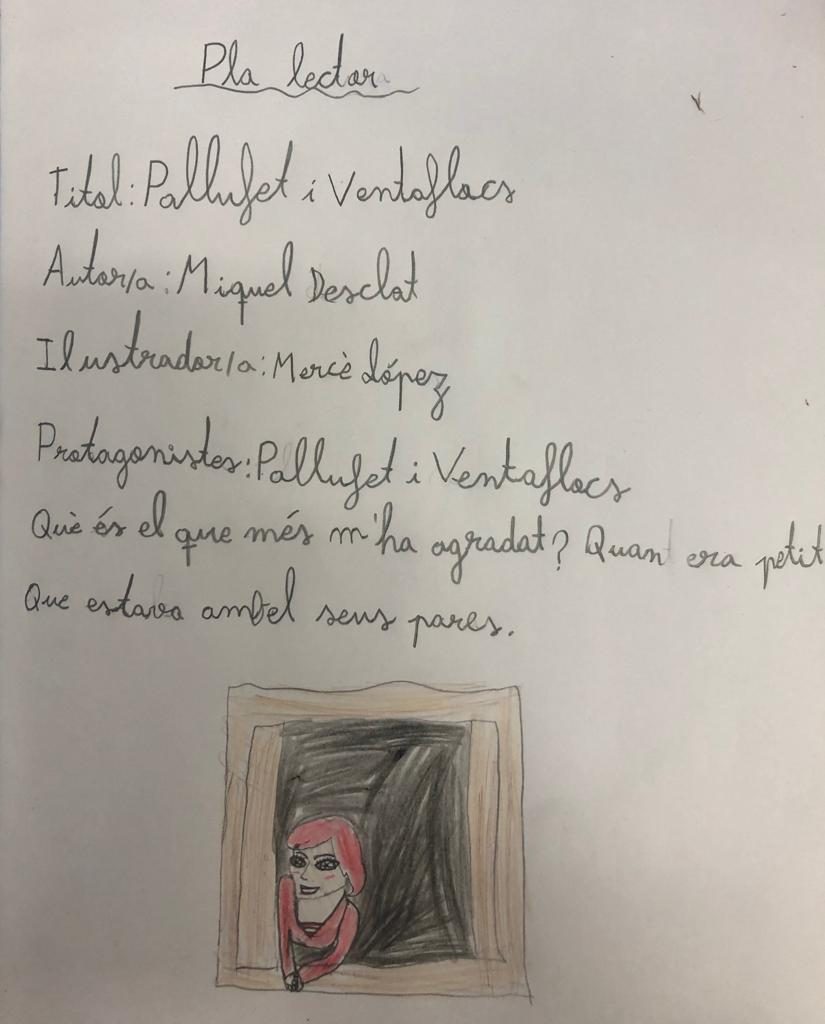 Pla lector
Títol: Pallufet i Ventaflocs
Autor/a: Miquel Desclot
Ilustrador/a: Mercè López
Protagonistes: Pallufet i Ventaflocs
Què és el que més m'ha agradat? Quan era petit
Que estava ambel seus pares.